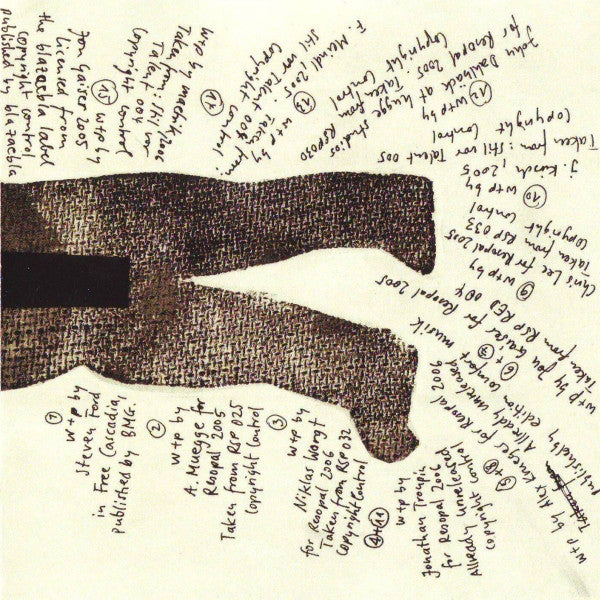 ①
w+p by
Steven Ford
in Free Cascadia,
published by BMG.
②
w+p by
A. Muegge for
Resopal 2005
Taken from RSP 025
Copyright Control
③
w+p by
Niklas Worgt
for Resopal 2006
Taken from RSP 032
Copyright Control
④+⑭
w+p by
Jonathan Troupin
for Resopal 2006
Allready unreleased
copyright control
⑤+⑧
w+p by Alex Krueger for Resopal 2006
Allready unreleased
published by edition comfort musik
⑥+⑦
w+p by Jon Gaiser for Resopal 2005
Taken from RSP RED 004
⑨ w+p by
Chris Lee for Resopal 2005
Taken from RSP 033
Copyright Control
⑩ w+p by
J. Kirsch, 2005
Taken from: Stil vor Talent 005
Copyright Control
⑪ w+p by
John Dahlback at hugge studios
for Resopal 2005. Taken from RSP020
Copyright Control
w+p by
Taken from: Stil vor
Talent 004
Copyright Control
⑬ w+p by
F. Meindl, 2005 Taken from:
Stil vor Talent 008
Copyright Control
⑮ w+p by
Jon Gaiser 2005
Licensed from
the blazaebla label
copyright control
published by blazaebla